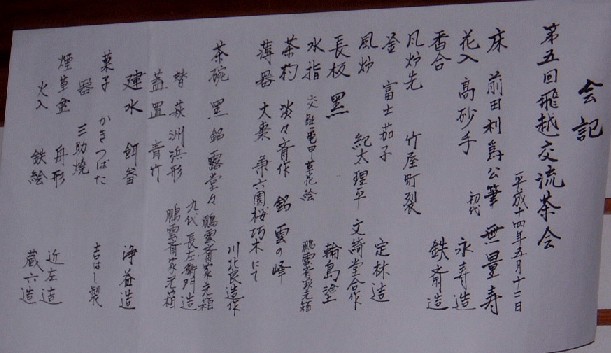 会記
第五回飛越交流茶会
平成十四年五月十二日
床 前田利為公筆 無量寿
花入 高砂手 初代 永寿造
香合 鉄斎造
風炉先 竹屋町裂
釜 富士茄子 定林造
風炉 紀文理平 文斎堂合作
長板 黒 輪島塗
水指 交趾
茶杓 淡々斎作 銘 雲の峰
薄器 大棗 兼六園桜朽木にて
茶碗 黒 銘 川 長造作
替 萩 洲浜形 九代長左衛門造
蓋置 青竹
建水 餌畚 浄益造
菓子 かきつばた 吉はし製
器 三助焼
煙草盆 舟形 近左造
火入 鉄絵 蔵六造